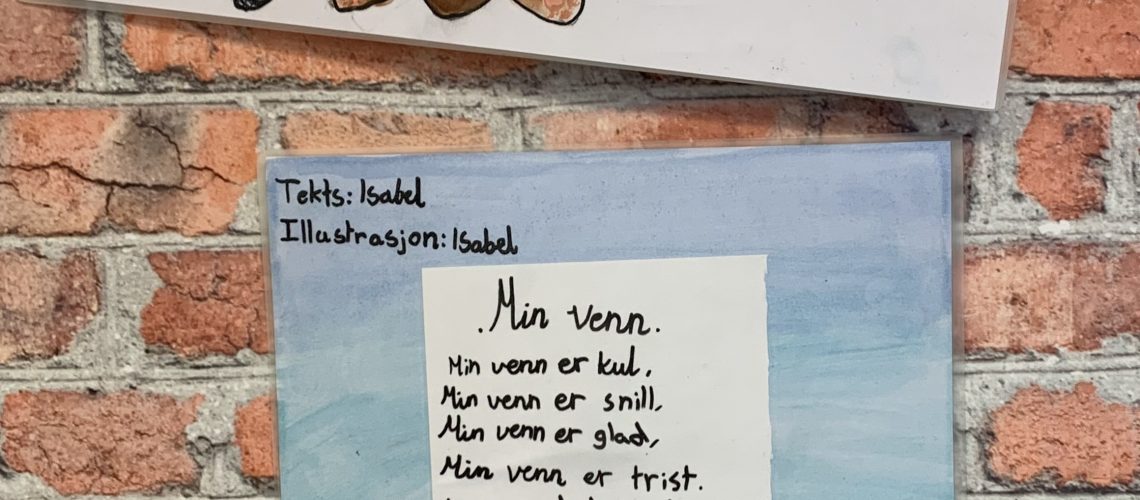 Tekts: Isabel
Illustrasjon: Isabel
.Min venn.
Min venn er kul,
Min venn er snill,
Min venn er glad,
Min venn er trist.